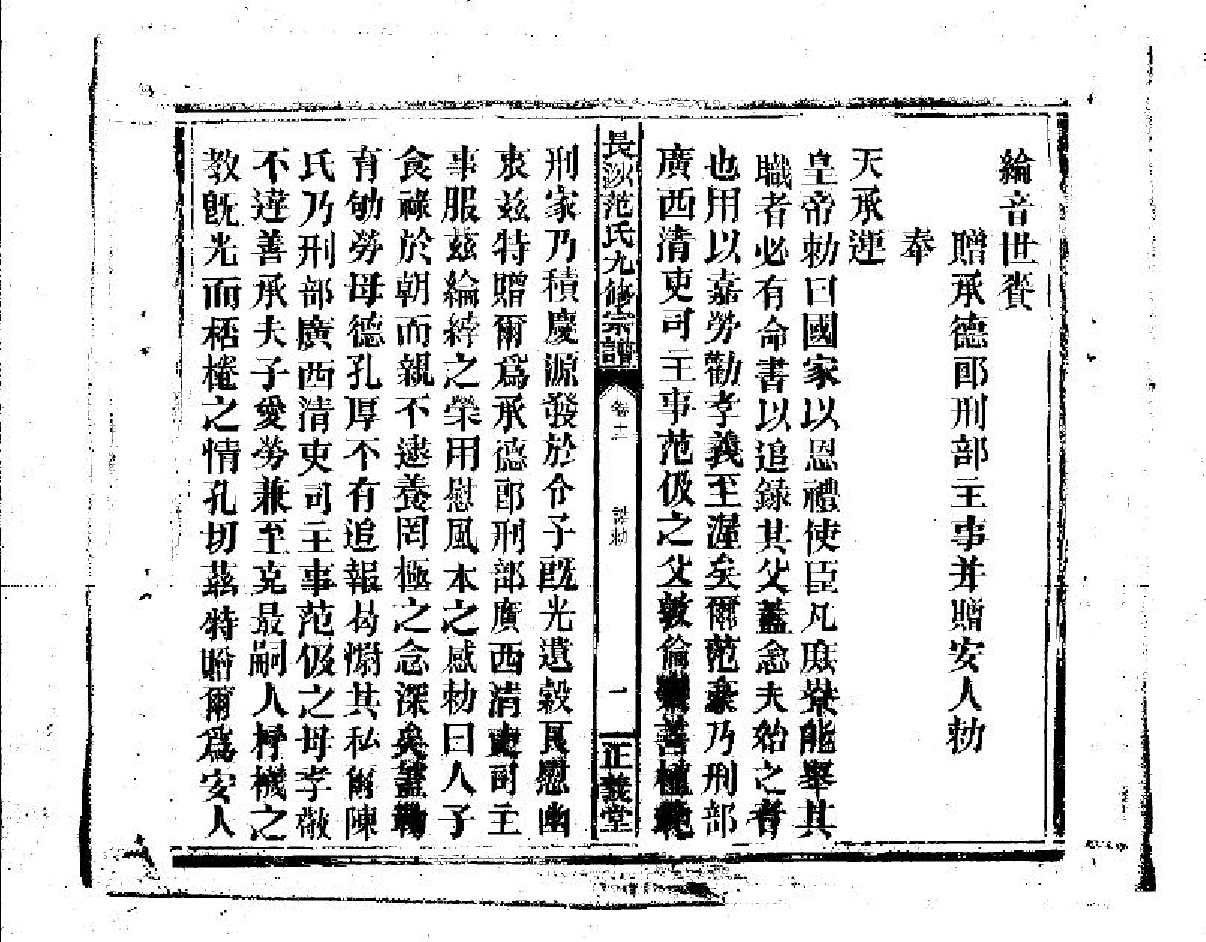 綸音世賚
贈承德郎刑部主事并贈安人勅
奉
天承運
皇帝勅曰國家以恩禮使臣凡庶寮能舉其
職者必有命書以追錄其父蓋念夫始之者
也用以嘉勞勸孝義至渥矣爾范豪乃刑部
廣西清吏司主事范伋之父敦倫善植
長沙范氏九修宗譜
卷十
誥勅
一
正義堂
刑家乃積慶源發於令子既光遺穀瓦慰幽
衷玆特贈爾爲承德郎刑部廣西清吏司主
事服玆綸綍之榮用慰風木之感勅曰人子
食祿於朝而親不逮養罔極之念深矣
有劬勞母德孔厚不有追報曷慰其私爾陳
氏乃刑部廣西清吏司主事范伋之母孝敬
不違善承夫子愛勞兼至克最嗣人杼機之
教既光而桮棬之情孔切玆特贈爾爲安人